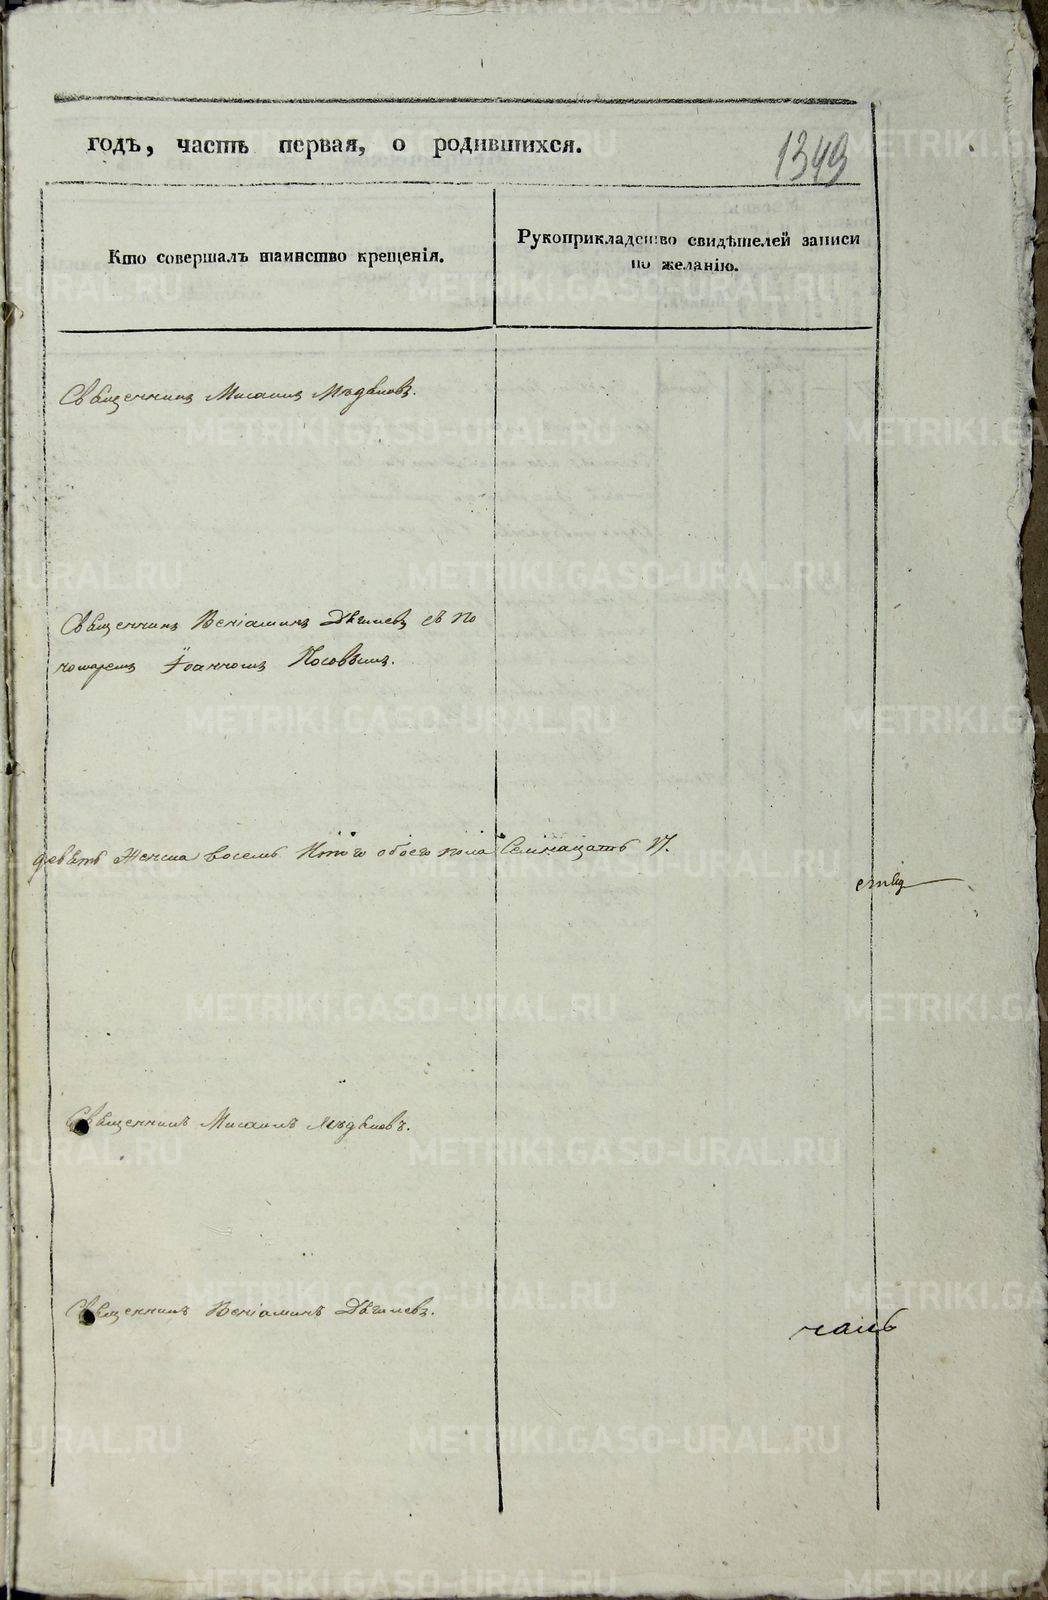 годъ, часть первая, о родившихся.
1349
Кто совершалъ таинство крещенія.
Рукоприкладство свидѣтелей записи
по желанію.
Священникъ Мисаилъ
Священникъ Веніаминъ Дягилевъ съ по
номаремъ Іоанномъ Носовымъ.
девять женска восемь Итого обоего пола Семнацать 17.
Священникъ Мисаилъ
Священникъ Веніаминъ Дягилевъ.
METRIKI.GASO-URAL.RU